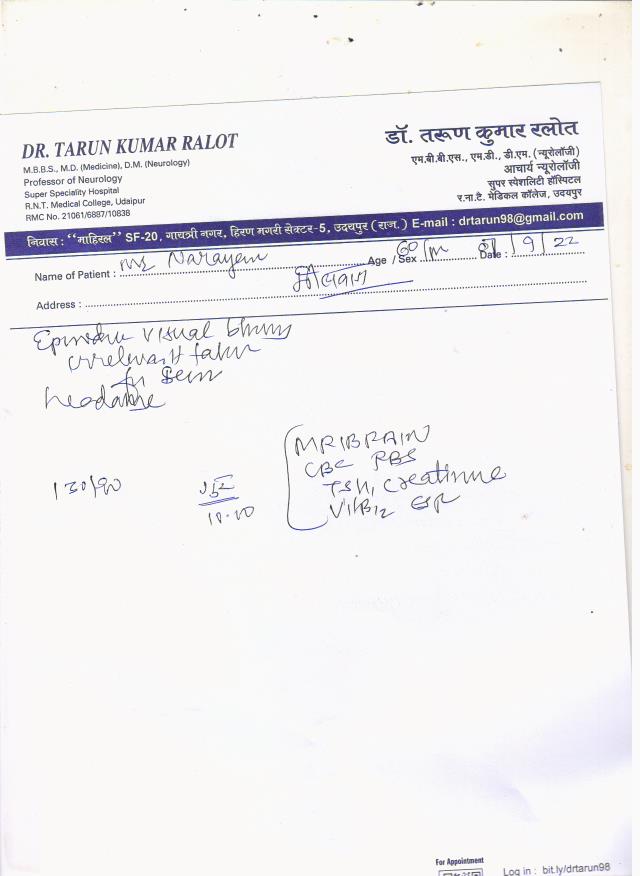 DR. TARUN KUMAR RALOT
M.B.B.S., M.D. (Medicine), D.M. (Neurology)
Professor of Neurology
Super Speciality Hospital
R.N.T. Medical College, Udaipur
RMC No. 21061/6887/10838
डॉ. तरूण कुमार रलोत
एम.बी.बी.एस., एम.डी., डी.एम. (न्यूरोलॉजी)
आचार्य न्यूरोलॉजी
सुपर स्पेशलिटी हॉस्पिटल
र.ना.टै. मेडिकल कॉलेज, उदयपुर
निवास : "माहिरल" SF-20, गायत्री नगर, हिरण मगरी सेक्टर-5, उदयपुर (राज.) E-mail : drtarun98@gmail.com
Name of Patient : Mr Narayan Age / Sex 60/m Date : /9/22
Address :
visual
irrelevant
headache
MRI BRAIN
CBC RBS
130/90 TSH, Creatinine
Vit B12 ESR
10.10
For Appointment
Log in : bit.ly/drtarun98